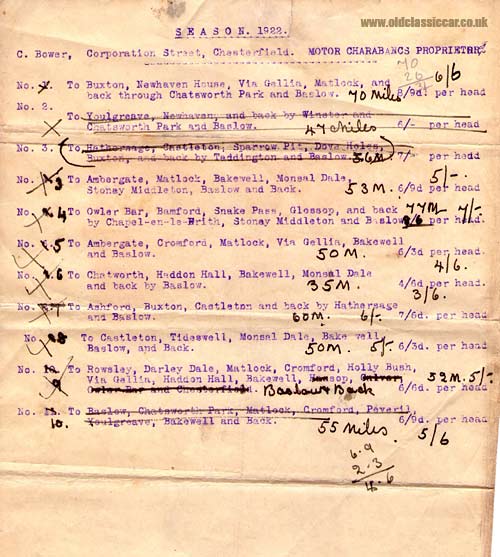 www.oldclassiccar.co.uk
SEASON. 1922.
C. Bower, Corporation Street, Chesterfield. MOTOR CHARABANCS PROPRIETRR
70
26
No. 1. To Buxton, Newhaven House, Via Gellia, Matlock, and 6/6
back through Chatsworth Park and Baslow. 70 Miles 8/9d. per head
No. 2.
To Youlgreave, Newhaven, and back by Winster and
Chatsworth Park and Baslow. 47 Miles 6/- per head
No. 3. To Hathersage, Castleton, Sparrow Pit, Dove Holes,
Buxton, and back by Teddington and Baslow. 56 M. 7/- per head
No. 3 To Ambergate, Matlock, Bakewell, Monsal Dale, 5/-.
Stoney Middleton, Baslow and Back. 53 M. 6/9d per head.
No. 4 To Owler Bar, Bamford, Snake Pass, Glossop, and back 77M 7/-
by Chapel-en-le-Frith, Stoney Middleton and Baslow per head.
No. 5 To Ambergate, Cromford, Matlock, Via Gellia, Bakewell
and Baslow. 50 M. 6/3d. per head
4/6.
No. 6 To Chatworth, Haddon Hall, Bakewell, Monsal Dale
and back by Baslow. 35 M. 4/6d. per head
3/6.
No. 7 To Ashford, Buxton, Castleton and back by Hathersage
and Baslow. 60 M. 6/- 7/6d. per head
No. 8 To Castleton, Tideswell, Monsal Dale, Bakewell,
Baslow, and Back. 50 M. 5/- 6/3d. per head
No. 10. To Rowsley, Darley Dale, Matlock, Cromford, Holly Bush,
9 Via Gellia, Haddon Hall, Bakewell, 52 M. 5/-
Owler Bar and Chesterfield. Baslow & Back 6/6d. per head
No. 11. To Baslow, Chatsworth Park, Matlock, Cromford, Peveril,
10. Youlgreave, Bakewell and Back. 6/9d. per head
55 Miles 5/6
6.9
2.3
4.6